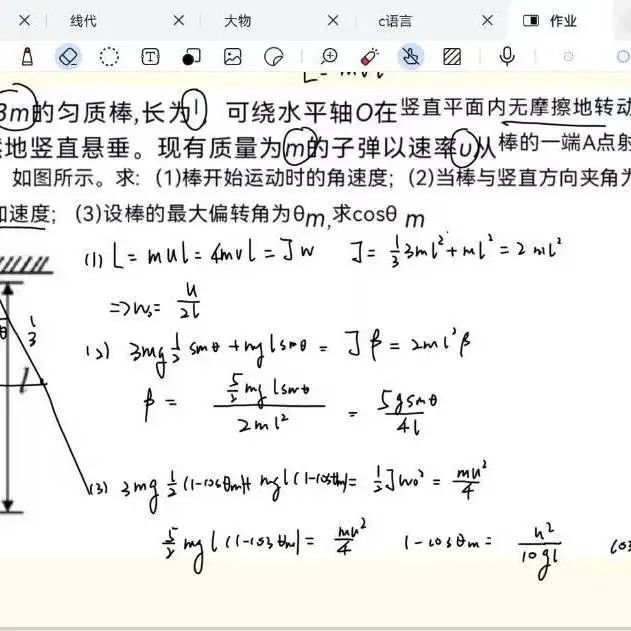 线代 大物 c语言 作业
3m的匀质棒,长为l 可绕水平轴O在竖直平面内无摩擦地转动
地竖直悬垂。现有质量为m的子弹以速率u从棒的一端A点射
如图所示。求: (1)棒开始运动时的角速度; (2)当棒与竖直方向夹角为
加速度; (3)设棒的最大偏转角为θm,求cosθ m
(1) L = mul = 4mvl = Jw J = 1/3 3ml² + ml² = 2ml²
=> w₀ = u/2l
(2) 3mg 1/2 sinθ + mglsinθ = Jβ = 2ml²β
β = 5/2 mglsinθ / 2ml² = 5gsinθ/4l
l
(3) 3mg 1/2 (1-cosθm)+ mgl(1-cosθm)= 1/2 Jw₀² = mu²/4
5/2 mgl(1-cosθm)= mu²/4 1-cosθm = u²/10gl cos